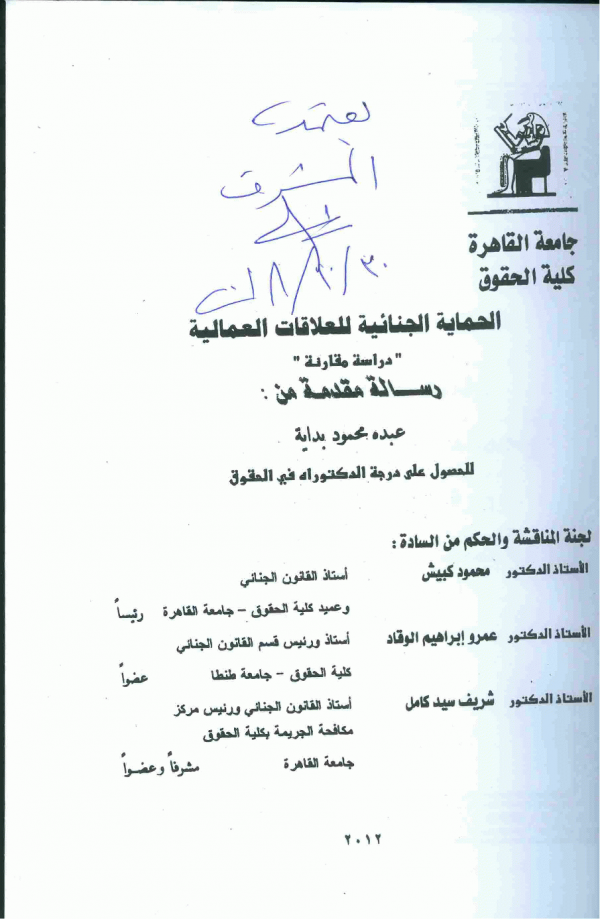 يعتمد
المشرف
جامعة القاهرة
كلية الحقوق
الحماية الجنائية للعلاقات العمالية
"دراسة مقارنة"
رســالة مقدمة من :
عبده محمود بداية
للحصول على درجة الدكتوراه في الحقوق
لجنة المناقشة والحكم من السادة :
الأستاذ الدكتور محمود كبيش أستاذ القانون الجنائي
وعميد كلية الحقوق – جامعة القاهرة رئيساً
الأستاذ الدكتور عمرو إبراهيم الوقاد أستاذ ورئيس قسم القانون الجنائي
كلية الحقوق – جامعة طنطا عضواً
الأستاذ الدكتور شريف سيد كامل أستاذ القانون الجنائي ورئيس مركز
مكافحة الجريمة بكلية الحقوق
جامعة القاهرة مشرفاً وعضواً
٢٠١٢